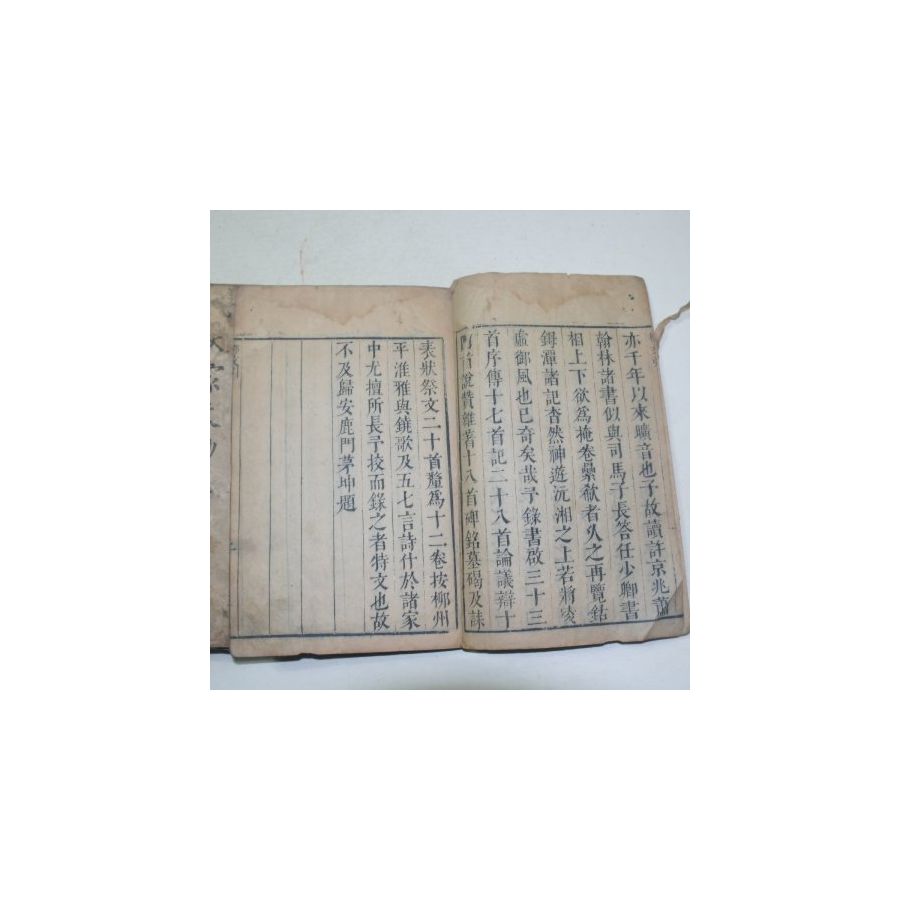 亦千年以來曠音也予故讀許京兆蕭
翰林諸書似與司馬子長答任少卿書
相上下欲為掩卷纍欷者久之再覽鈷
鉧潭諸記杳然神遊沅湘之上若將凌
虛御風也已奇矣哉予錄書啟三十三
首序傳十七首記二十八首論議辯十
四首說贊雜著十八首碑銘墓碣及誄
表狀祭文二十首釐為十二卷按柳州
平淮雅與鐃歌及五七言詩什於諸家
中尤擅所長予挍而錄之者特文也故
不及歸安鹿門茅坤題